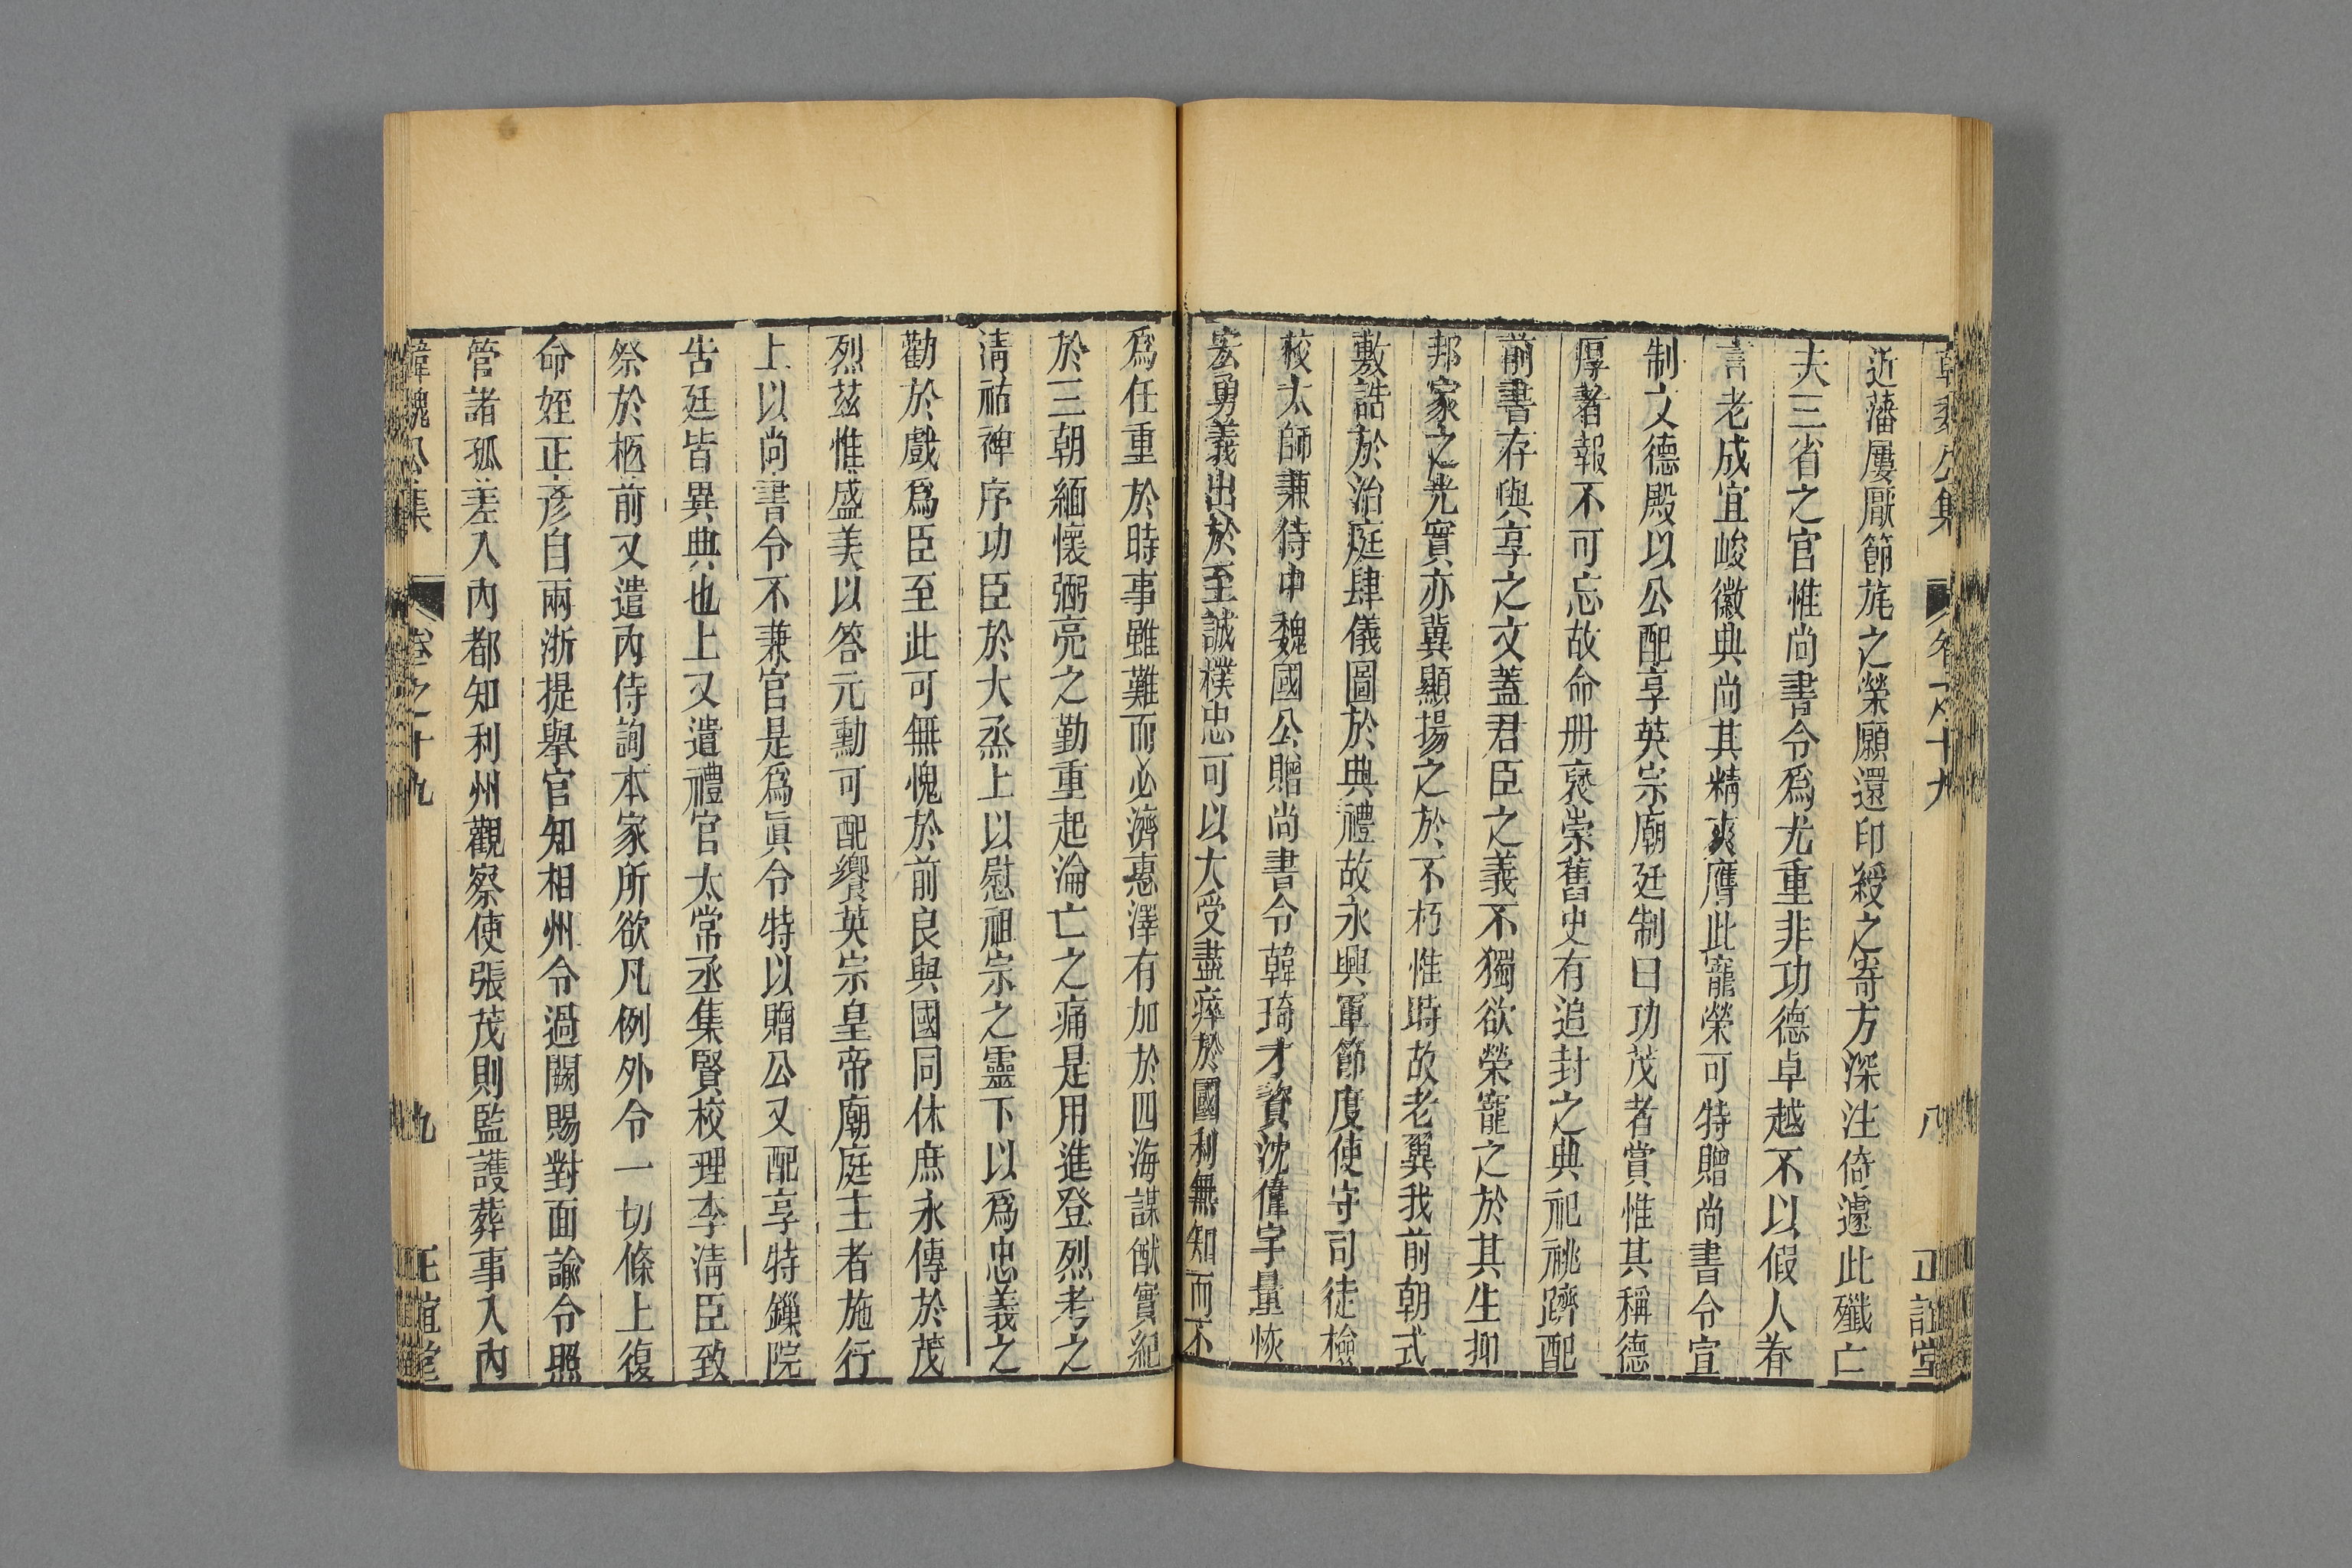 韓魏公集 卷之十九 八 正誼堂
近藩屢厭節旄之榮願還印綬之寄方深注倚遽此殲亡
夫三省之官惟尚書令爲尤重非功德卓越不以假人眷
言老成宜峻徽典尚其精爽膺此寵榮可特贈尚書令宣
制文德殿以公配享英宗廟廷制曰功茂者賞惟其稱德
厚者報不可忘故命册褒崇舊史有追封之典祀祧躋配
前書存與享之文蓋君臣之義不獨欲榮寵之於其生抑
邦家之光實亦冀顯揚之於不朽惟時故老翼我前朝式
敷誥於治庭肆儀圖於典禮故永興軍節度使守司徒檢
校太師兼侍中魏國公贈尚書令韓琦才資沈偉宇量恢
宏勇義出於至誠樸忠可以大受盡瘁於國利無知而不
爲任重於時事雖難而必濟惠澤有加於四海謀猷實紀
於三朝緬懷弼亮之勤重起淪亡之痛是用進登烈考之
淸祏禆序功臣於大烝上以慰祖宗之靈下以爲忠義之
勸於戲爲臣至此可無愧於前良與國同休庶永傳於茂
烈茲惟盛美以答元勳可配饗英宗皇帝廟庭主者施行
上以尚書令不兼官是爲眞令特以贈公又配享特鏁院
告廷皆異典也上又遣禮官太常丞集賢校理李淸臣致
祭於柩前又遣內侍詢本家所欲凡例外令一切條上復
命姪正彥自兩浙提舉官知相州令過闕賜對面諭令照
管諸孤差入內都知利州觀察使張茂則監護葬事入內
韓魏公集 卷之十九 九 正誼堂